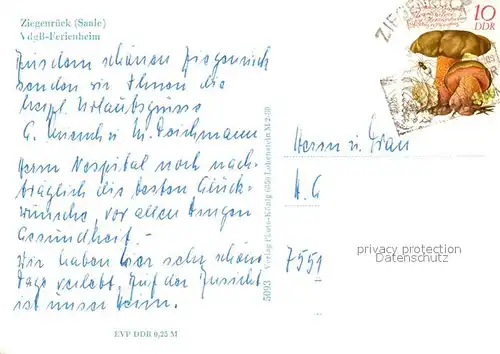 Ziegenrück (Saale)
VdgB-Ferienheim
Aus dem schönen Ziegenrück
senden wir Ihnen die
herzl. Urlaubsgrüsse
G. u. M. Deichmann
Herrn Nospital noch nach-
träglich die besten Glück-
wünsche, vor allen Dingen
Gesundheit. -
Wir haben hier sehr schöne
Tage verlebt. Auf der
ist unser Heim.
EVP DDR 0,25 M
5093 Verlag Photo-König 6850 Lobenstein
10
DDR
ZIEGENRÜCK
Herrn u. Frau
7551
privacy protection
Datenschutz